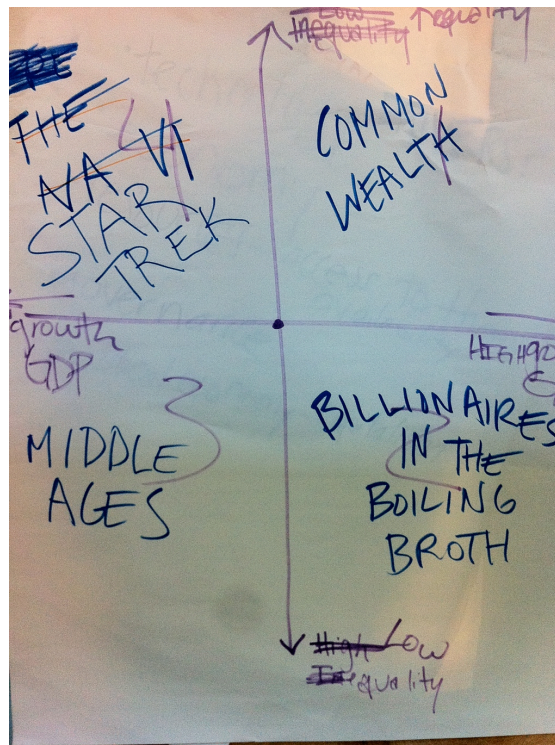 Low
Inequality equality
THE
NA VI
STAR
TREK
COMMON
WEALTH
growth
GDP
HIGH gro
G
MIDDLE
AGES
BILLIONAIRES
IN THE
BOILING
BROTH
High Low
Inequality